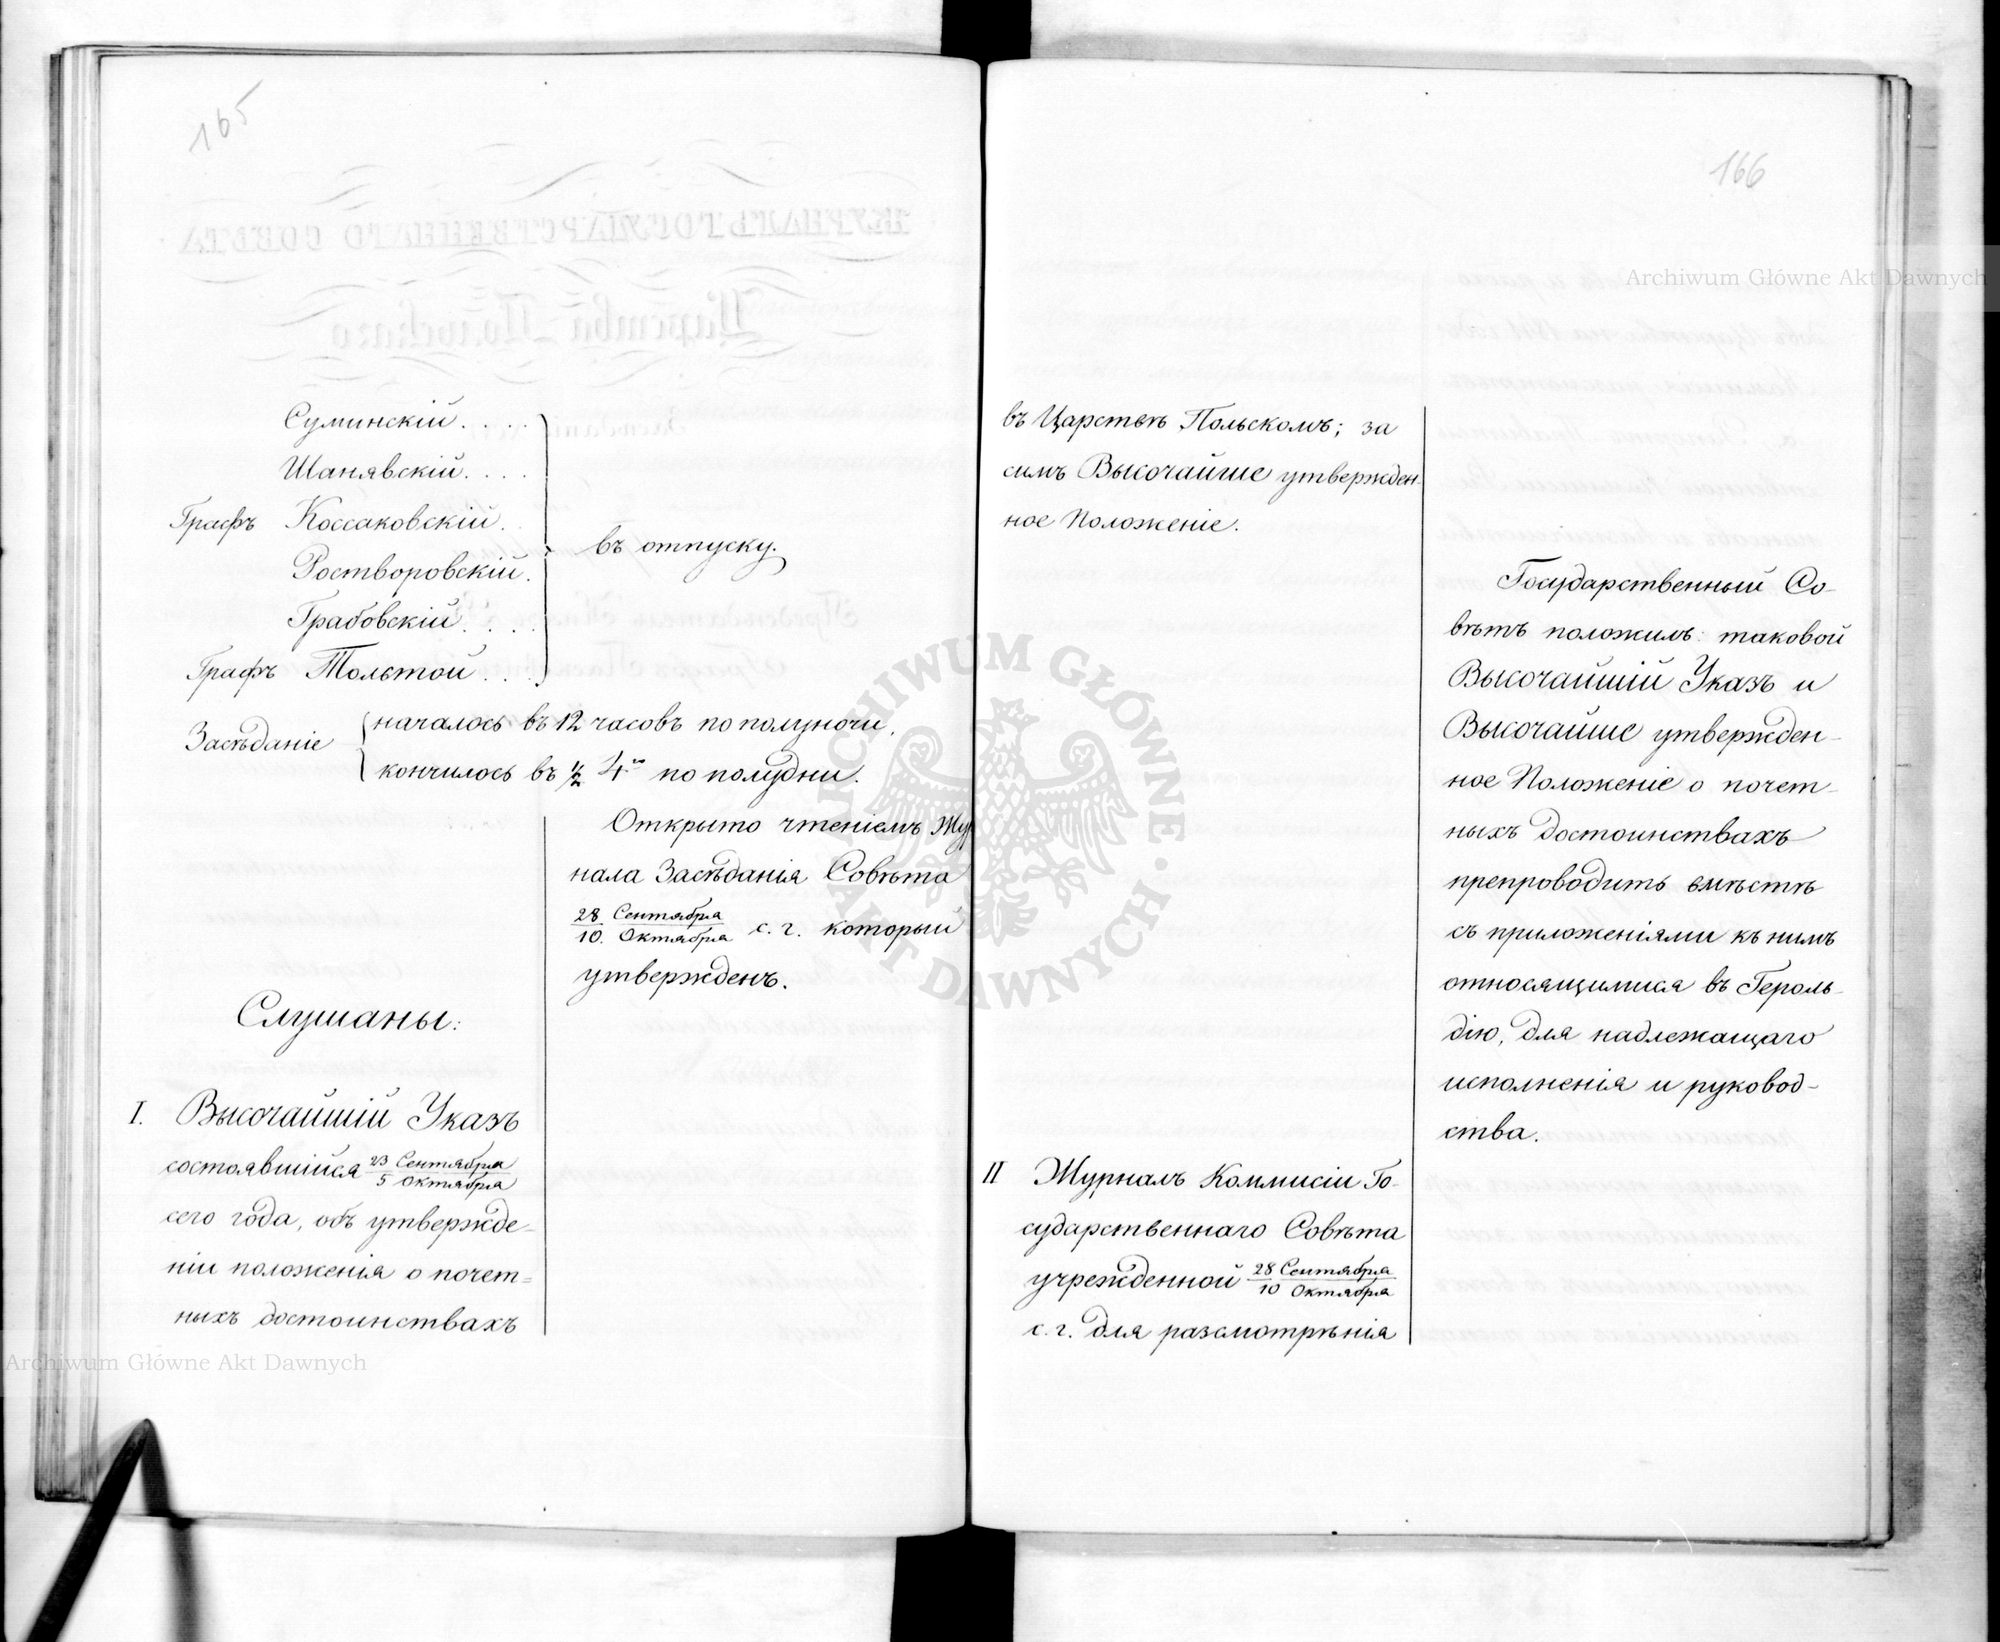 165
Суминскій . . . .
Шанявскій . . . .
Графъ Коссаковскій .
въ отпуску.
Ростворовскій .
Грабовскій . . . .
Графъ Толстой . . .
Засѣданіе
началось въ 12 часовъ по полуночи,
кончилось въ ½ 4го по полудни.
Открыто чтеніемъ Жур
нала Засѣданія Совѣта
28 Сентября / 10 Октября с. г. который
утвержденъ.
Слушаны:
I. Высочайшій Указъ
состоявшійся 23 Сентября / 5 Октября
сего года, объ утвержде-
ніи положенія о почет=
ныхъ достоинствахъ
166
въ Царствѣ Польскомъ; за
симъ Высочайше утвержден-
ное Положеніе.
Государственный Со-
вѣтъ положилъ: таковой
Высочайшій Указъ и
Высочайше утвержден-
ное Положеніе о почет-
ныхъ достоинствахъ
препроводить вмѣстѣ
съ приложеніями къ нимъ
относящимися въ Героль-
дію, для надлежащаго
исполненія и руковод-
ства.
II Журналъ Коммисіи Го-
сударственнаго Совѣта
учрежденной 28 Сентября / 10 Октября
с. г. для разсмотрѣнія
Archiwum Główne Akt Dawnych
Archiwum Główne Akt Dawnych
ARCHIWUM GŁÓWNE AKT DAWNYCH